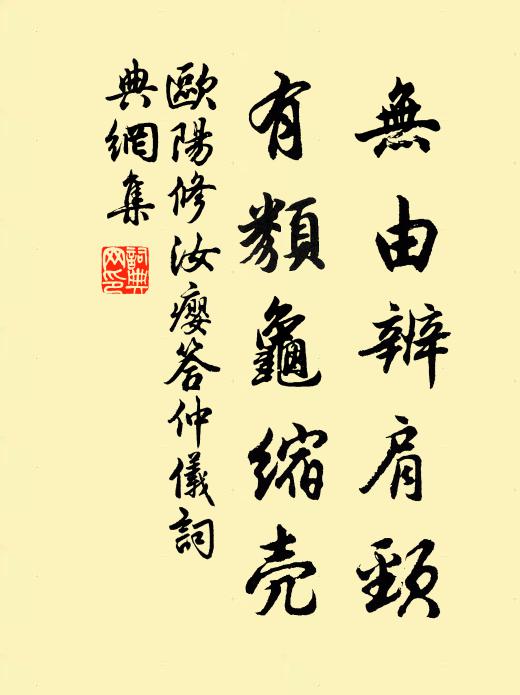 無由辨肩頸
有類龜縮壳
歐陽修汝癭答仲儀詞
典網集
詞典
网印